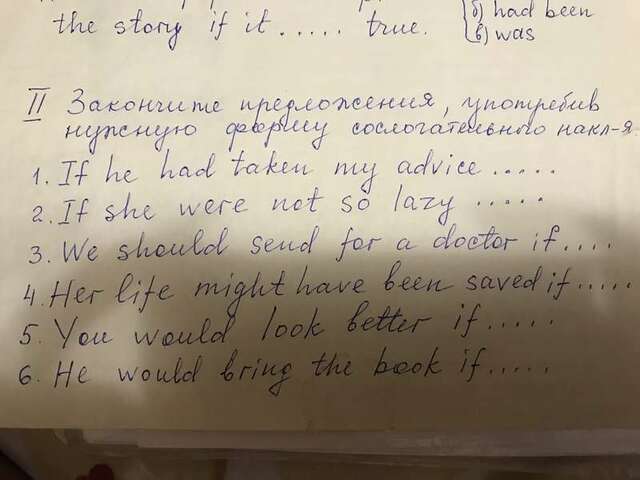 the story if it ..... true.
б) had been
в) was
II Закончите предложения, употребив
нужную форму сослагательного накл-я.
1. If he had taken my advice .....
2. If she were not so lazy .....
3. We should send for a doctor if ....
4. Her life might have been saved if .....
5. You would look better if .....
6. He would bring the book if .....